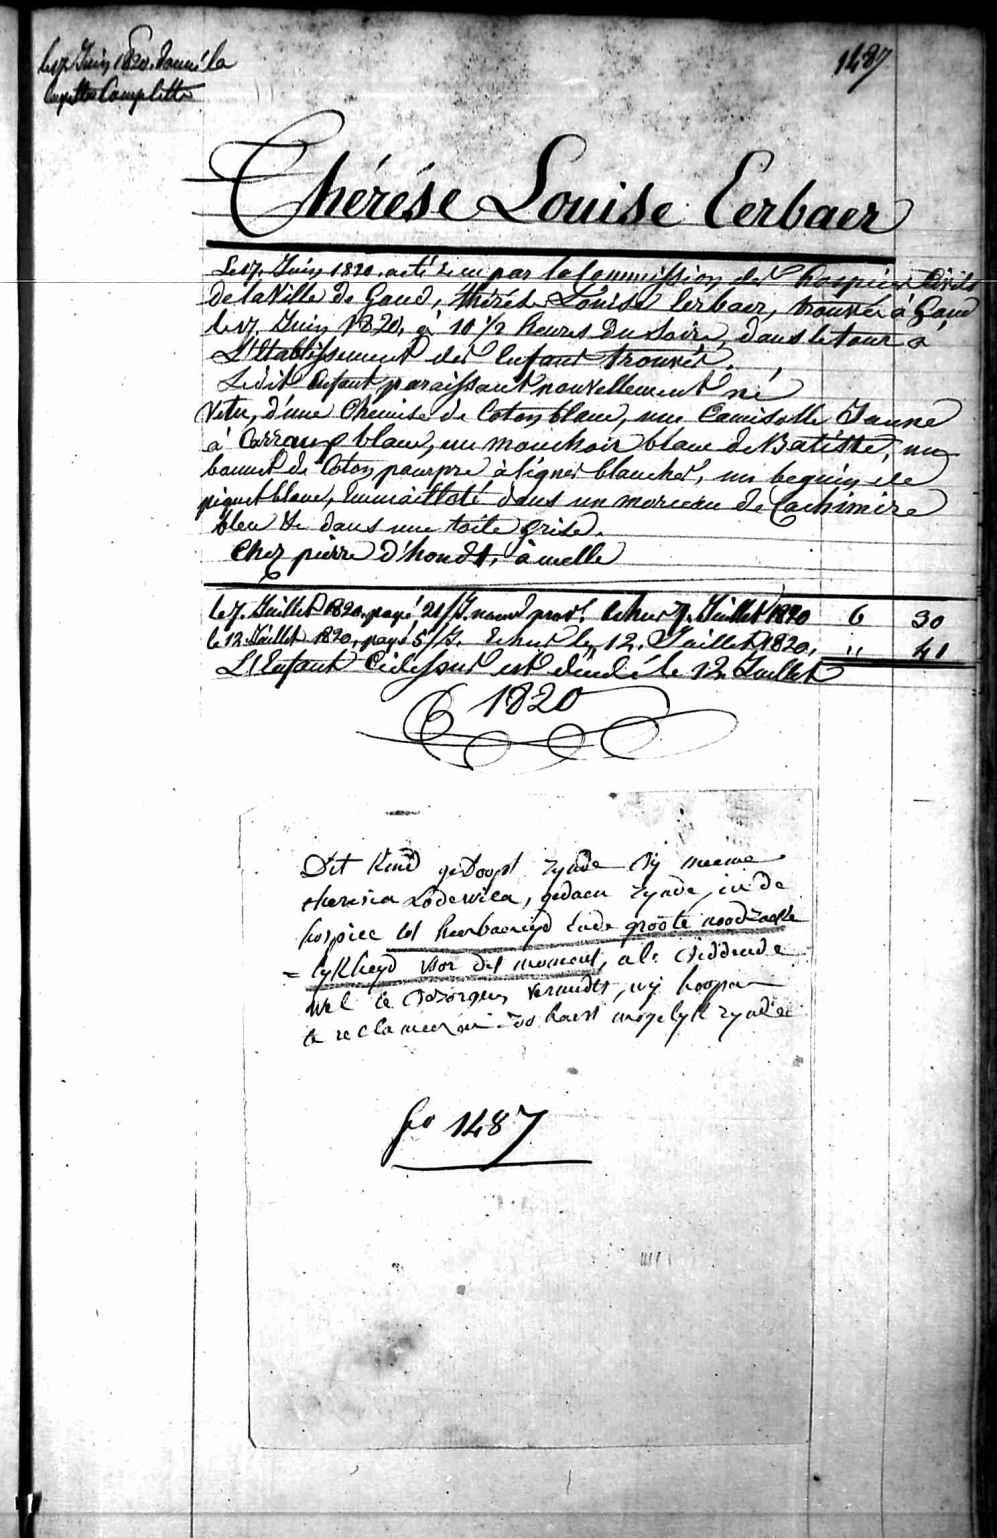 le 17 Juin 1820. donné la
layette Complette
1487
Thérése Louise Cerbaer
Le 17. Juin 1820. a été recu par la Commission des hospices Civils
de la Ville de Gand, thérése Louise Cerbaer, trouvée à Gand
le 17. Juin 1820, à 10 1/2 heures du Soir, dans le tour à
L'Etablissement des Enfans trouvés.
Ledit Enfant paraissant nouvellement né
Vetu, d'une Chemise de Coton blanc, une Camisolle Jaune
à Carraux blanc, un mouchoir blanc de Batiste, un
bonnet de Coton pourpre à lignes blanches, un beguin de
piquet blanc, Emmailloté dans un morceau de Cachimire
bleu & dans une toile grise.
Chez pierre d'hondt, à melle
le 7. Juillet 1820. payé, 21/J. nourd prov. Echus 7. Juillet 1820 6 30
le 12. Juillet 1820, payé 5/J. Echus le 12. Juillet 1820. " 41
L'Enfant Cidessus est décédé le 12 Juillet
1820
Dit kind gedoopt zynde by naeme
theresia Lodewica, gedaen zynde, in de
hospice tot eende groote noodzaeke
= lykheyd voor dit moment, als biddende
wel te bezorgen, wy hoopen
te reclameeren zoo haest mogelyk zynde
fo 1487